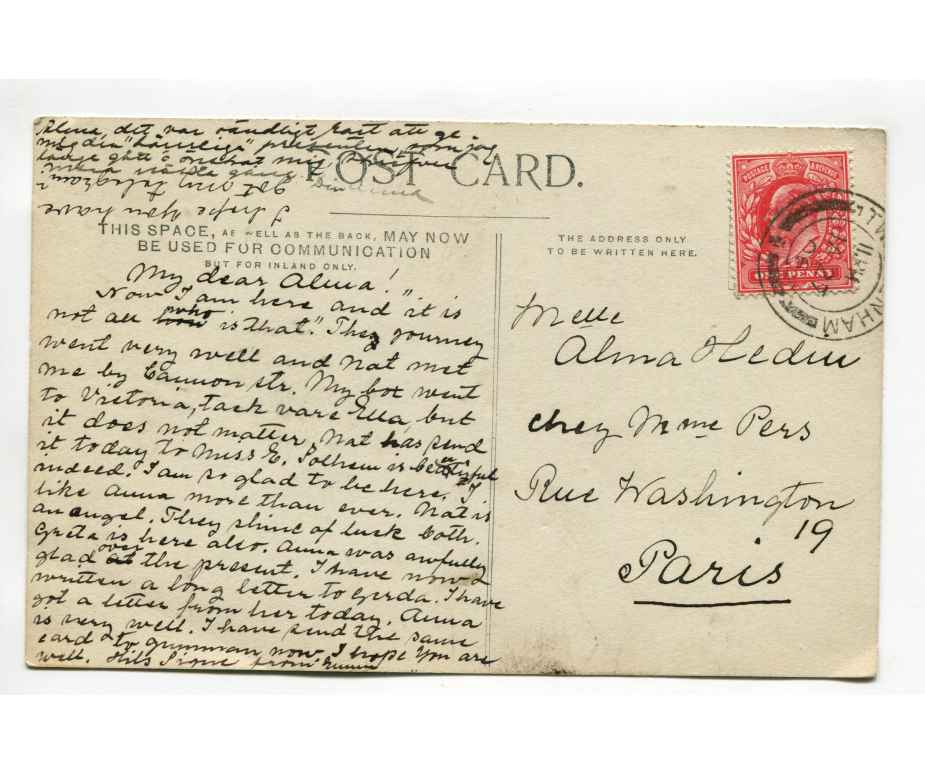 Alma, det var oändligt rart att ge
mig din
länge gått o önskat mig,
POST CARD.
I hope you have
got my
THIS SPACE, AS WELL AS THE BACK, MAY NOW
BE USED FOR COMMUNICATION
BUT FOR INLAND ONLY.
THE ADDRESS ONLY
TO BE WRITTEN HERE.
POSTAGE REVENUE
ONE PENNY
TWICKENHAM
My dear Alma!
Now I am here and "it is
not all who is that". They yourney
went very well and Nat met
me by Cannon str. My box went
to Victoria, tack vare Ella, but
it does not matter, Nat has send
it today to Miss E. Solhem is beautiful
indeed. I am so glad to be here. I
like Anna more than ever. Nat is
an angel. They shine of luck both.
Greta is here also. Anna was awfully
glad over the present. I have now
written a long letter to Gerda. I have
got a letter from her today. Anna
is very well. I have send the same
card to gumman now. I hope you are
well. Hils Signe from
Melle
Alma Hedin
chez Mme Pers
Rue Washington
19
Paris